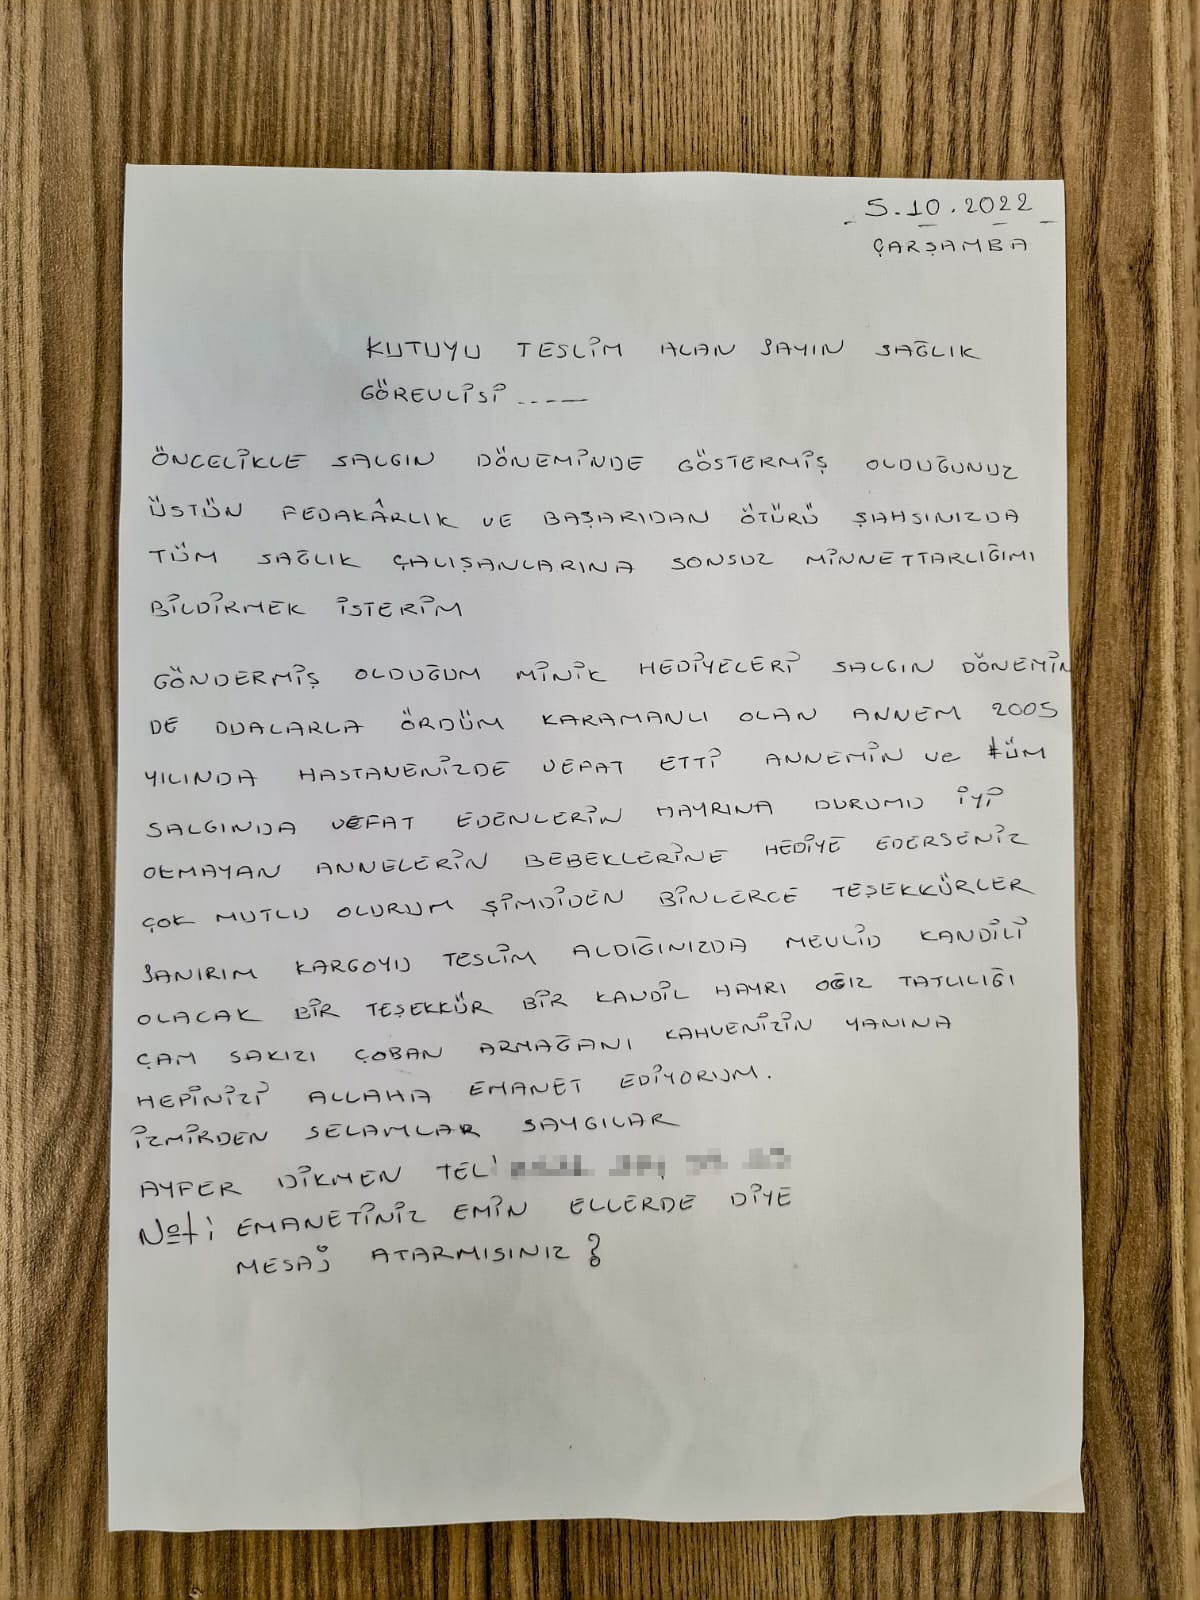 5.10.2022
ÇARŞAMBA
KUTUYU TESLİM ALAN SAYIN SAĞLIK
GÖREVLİSİ ....——
ÖNCELİKLE SALGIN DÖNEMİNDE GÖSTERMİŞ OLDUĞUNUZ
ÜSTÜN FEDAKÂRLIK VE BAŞARIDAN ÖTÜRÜ ŞAHSINIZDA
TÜM SAĞLIK ÇALIŞANLARINA SONSUZ MİNNETTARLIĞIMI
BİLDİRMEK İSTERİM
GÖNDERMİŞ OLDUĞUM MİNİK HEDİYELERİ SALGIN DÖNEMİN
DE DUALARLA ÖRDÜM KARAMANLI OLAN ANNEM 2005
YILINDA HASTANENİZDE VEFAT ETTİ ANNEMİN ve TÜM
SALGINDA VEFAT EDENLERİN HAYRINA DURUMU İYİ
OLMAYAN ANNELERİN BEBEKLERİNE HEDİYE EDERSENİZ
ÇOK MUTLU OLURUM ŞİMDİDEN BİNLERCE TEŞEKKÜRLER
SANIRIM KARGOYU TESLİM ALDIĞINIZDA MEVLİD KANDİLİ
OLACAK BİR TEŞEKKÜR BİR KANDİL HAYRI OĞIZ TATLILIĞI
ÇAM SAKIZI ÇOBAN ARMAĞANI KAHVENİZİN YANINA
HEPİNİZİ ALLAHA EMANET EDİYORUM.
İZMİRDEN SELAMLAR SAYGILAR
AYFER DİKMEN TEL:
Not: EMANETİNİZ EMİN ELLERDE DİYE
MESAJ ATARMISINIZ?